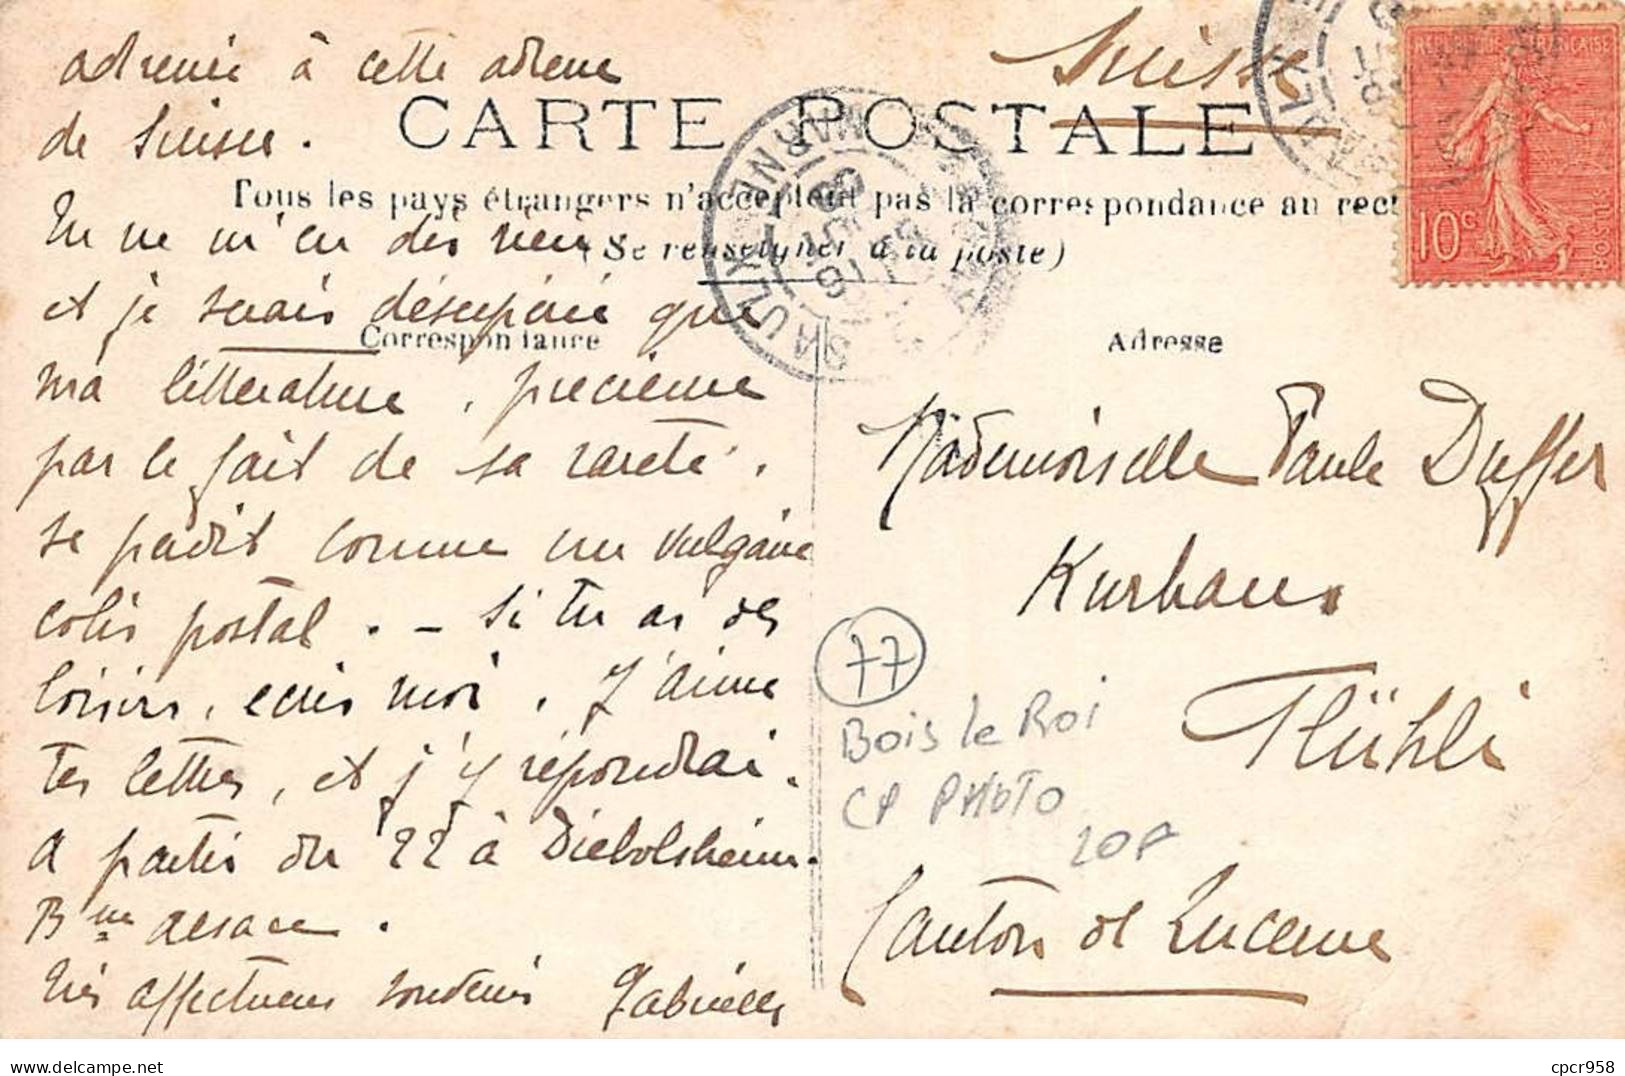 adressée à cette adresse
de Suisse.
Tu ne m'en dis rien
et je serais désespérée que
ma littérature, précieuse
par le fait de sa rareté,
se perdit comme un vulgaire
colis postal. - Si tu as des
loisirs, écris moi. J'aime
tes lettres, et j'y répondrai.
A partir du 22 à Diebolsheim.
Bsse alsace.
Très affectueux souvenirs Gabrielle
Suisse
CARTE POSTALE
Tous les pays étrangers n'acceptent pas la correspondance au rect
(Se renseigner à la poste)
Correspondance
Adresse
Mademoiselle Paule Duffer
Kurhaus
Flühli
Canton de Lucerne
77
Bois le Roi
CP PHOTO
20F
REPUBLIQUE FRANÇAISE
10c
POSTES
SAULX
MARNE
cpcr958